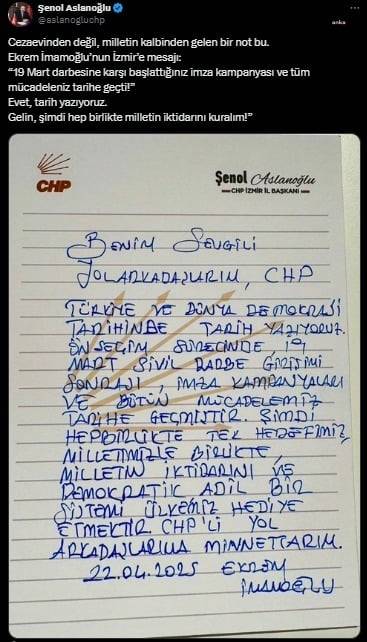 Şenol Aslanoğlu
@aslanogluchp
anka
Cezaevinden değil, milletin kalbinden gelen bir not bu.
Ekrem İmamoğlu'nun İzmir'e mesajı:
"19 Mart darbesine karşı başlattığınız imza kampanyası ve tüm
mücadeleniz tarihe geçti!"
Evet, tarih yazıyoruz.
Gelin, şimdi hep birlikte milletin iktidarını kuralım!"
CHP
Şenol Aslanoğlu
CHP İZMİR İL BAŞKANI
BENİM SEVGİLİ
YOL ARKADAŞLARIM, CHP
TÜRKİYE VE DÜNYA DEMOKRASİ
TARİHİNDE TARİH YAZIYORUZ.
ÖN SEÇİM SÜRECİNDE, 19
MART SİVİL DARBE GİRİŞİMİ
SONRASI, İMZA KAMPANYALARI
VE BÜTÜN MÜCADELEMİZ
TARİHE GEÇMİŞTİR. ŞİMDİ
HEPBİRLİKTE TEK HEDEFİMİZ,
MİLLETİMİZLE BİRLİKTE,
MİLLETİN İKTİDARINI VE
DEMOKRATİK ADİL BİR
SİSTEMİ ÜLKEMİZE HEDİYE
ETMEKTİR CHP'Lİ YOL
ARKADAŞLARIMA MİNNETTARIM.
22.04.2025 EKREM
İMAMOĞLU